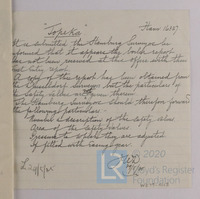 "Topeka"
It is submitted the Hamburg Surveyor be
informed that it appears the boiler report
has not been received at the office with their
report.
A copy of the report has been obtained from
the Dusseldorf Surveyors but the particulars of
the safety valves
The Hamburg Surveyor should therefore forward
the following particulars:
Number & description of the safety valves
Area of the safety valves
Pressure to which they are adjusted
If fitted with easing gear
© 2020
Lloyd's Register
Foundation